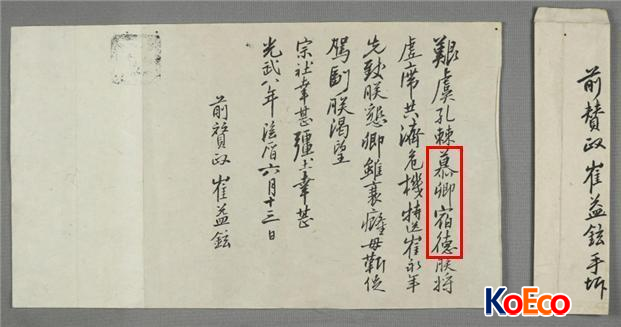 艱虞孔棘慕卿宿德朕將
虛席共濟危機特送崔永年
先致朕懇卿雖衰癃毋靳促
駕副朕渴望
宗社幸甚疆土幸甚
光武八年陰曆六月十三日
前贊政 崔益鉉
前贊政崔益鉉手坼
KoEco